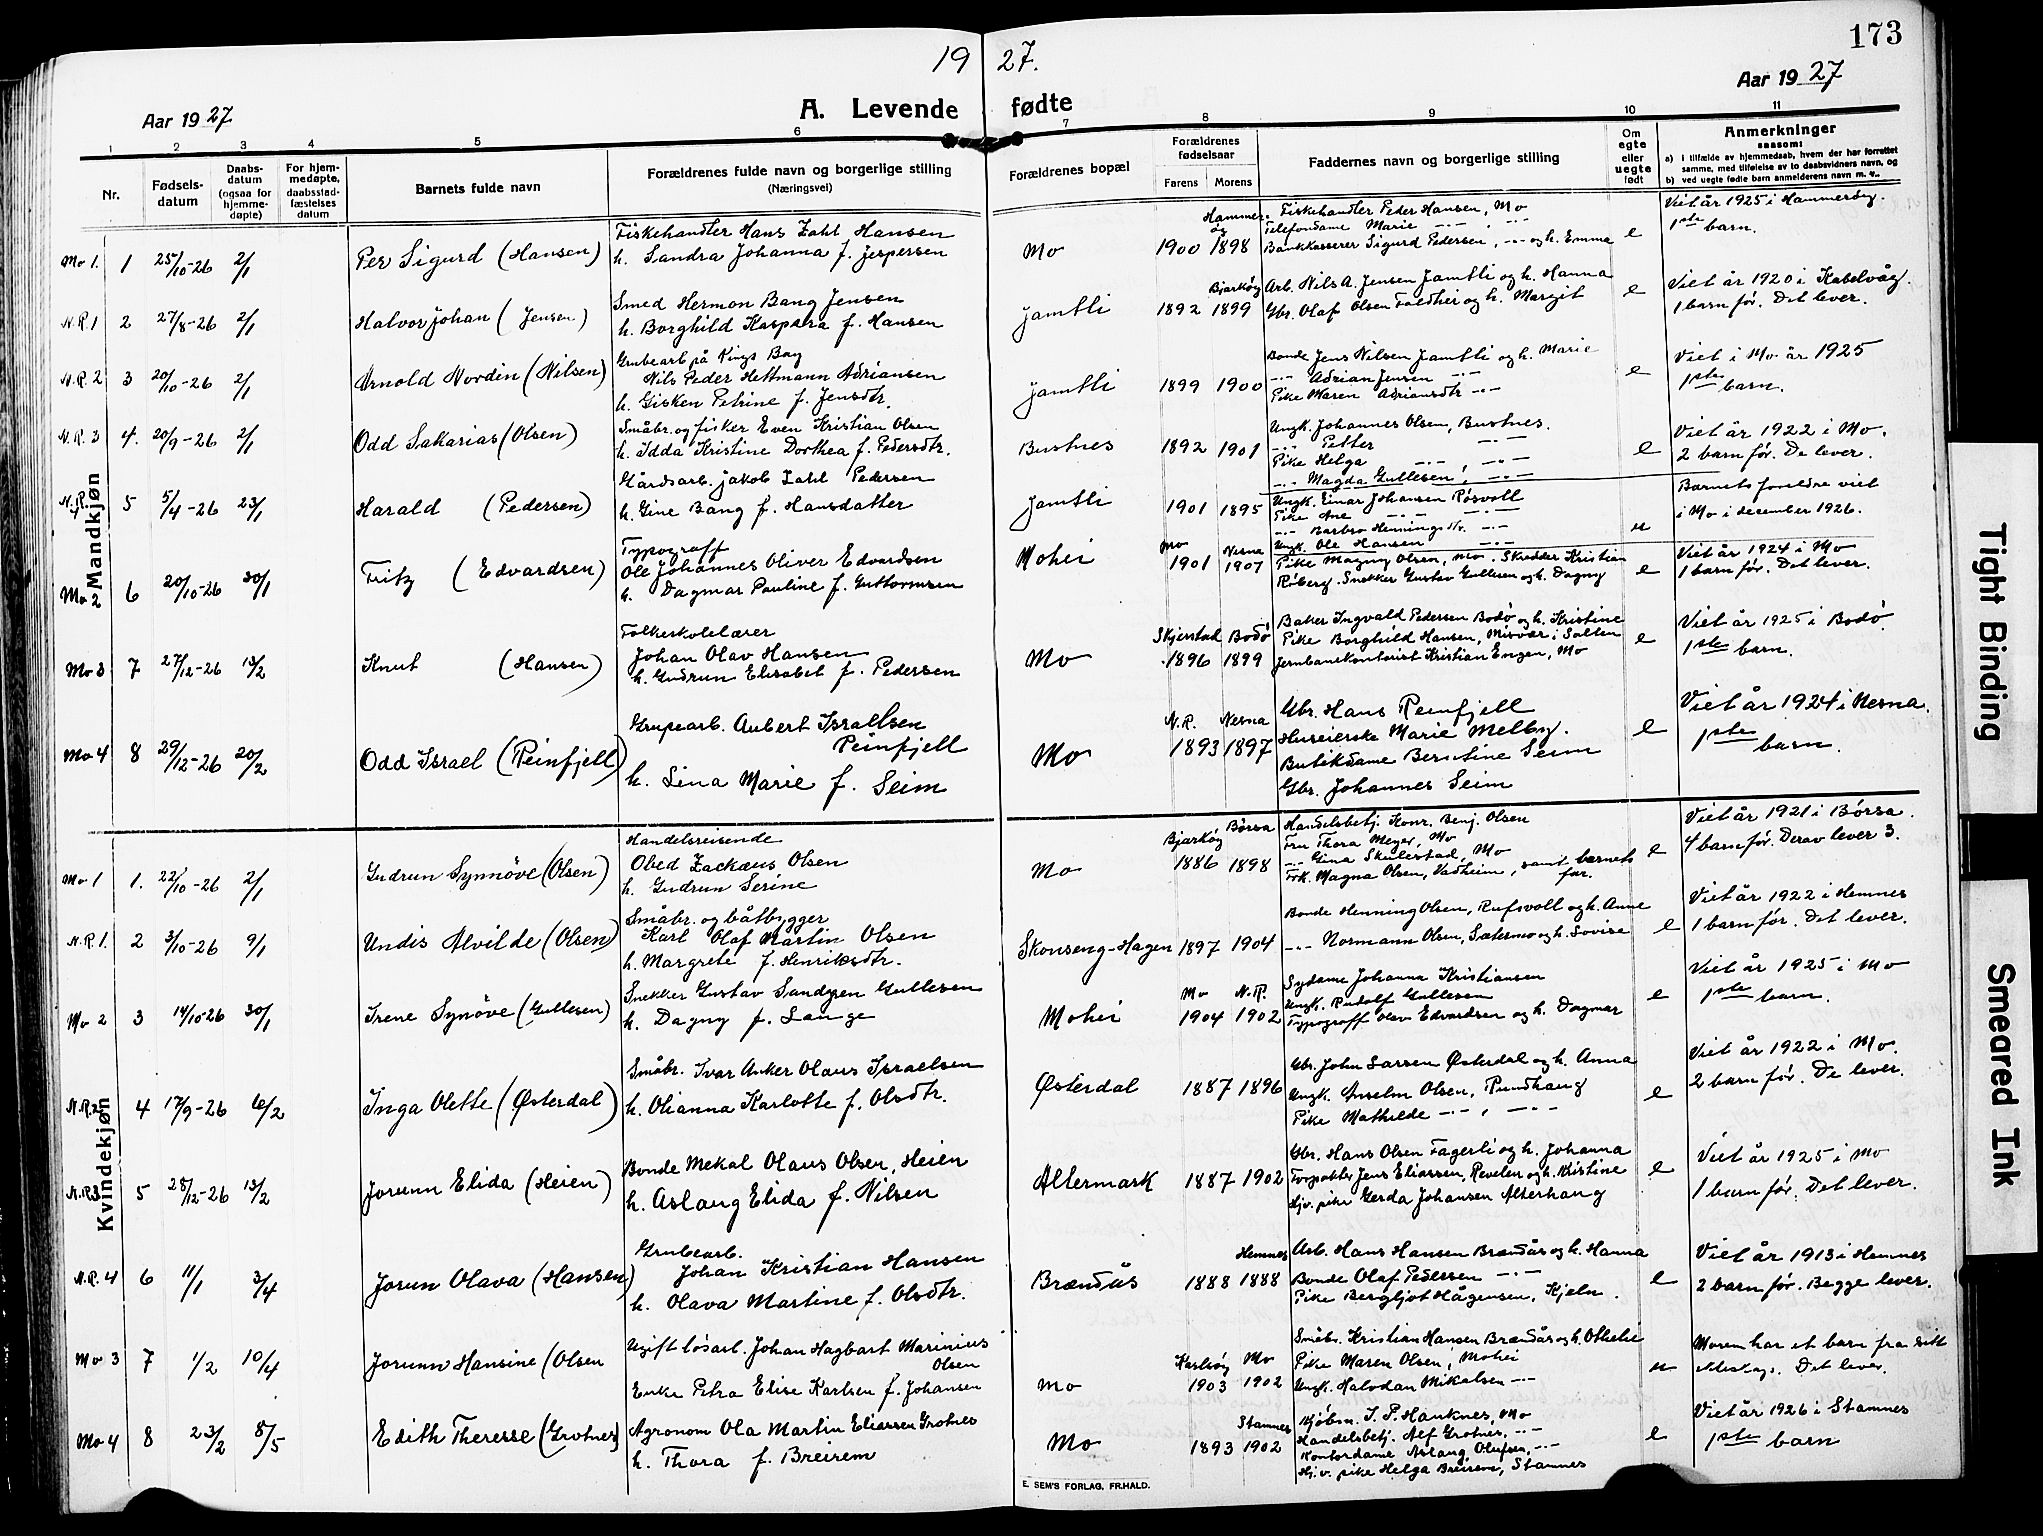 173
19 27.
Aar 19 27
A. Levende fødte
Aar 19 27
1 2 3 4 5 6 7 8 9 10 11
Nr.
Fødsels-
datum
Daabs-
datum
(ogsaa for
hjemme-
døpte)
For hjem-
medøpte,
daabsstad-
fæstelses
datum
Barnets fulde navn
Forældrenes fulde navn og borgerlige stilling
(Næringsvei)
Forældrenes bopæl
Forældrenes
fødselsaar
Farens Morens
Faddernes navn og borgerlige stilling
Om
egte
eller
uegte
født
Anmerkninger
saasom:
a) i tilfælde av hjemmedaab, hvem der har forrettet
samme, med tilføielse av to daabsvidners navn, og
b) ved uegte fødte barn anmelderens navn m. v..
Mandkjøn
Mo 1. 1 25/10-26 2/1
Per Sigurd (Hansen)
Fiskehandler Hans Zahl Hansen
h. Sandra Johanna f. Jespersen
Mo
Hammer-
øy
1900 1898
Fiskehandler Peder Hansen, Mo
Telefondame Marie -"- , -"-
Bankkasserer Sigurd Pedersen, -"- og h. Emma
e
Viet år 1925 i Hammerøy.
1ste barn.
N.R.1 2 27/8-26 2/1
Halvor Johan (Jensen)
Smed Hermon Bang Jensen
h. Borghild Kaspara f. Hansen
Jamtli
Bjarkøy
1892 1899
Arb. Nils A. Jensen Jamtli og h. Hanna
Gbr. Olaf Olsen Faldhei og h. Margit
e
Viet år 1920 i Kabelvåg.
1 barn før. Det lever.
N.R. 2 3 20/10-26 2/1
Arnold Nordin (Nilsen)
Grubearb på Kings Bay
Nils Peder Hettmann Adriansen
h. Gisken Petrine f. Jensdtr.
Jamtli
1899 1900
Bonde Jens Nilsen Jamtli og h. Marie
-"- Adrian Jensen -"-
Pike Maren Adriansdtr -"-
e
Viet i Mo år 1925
1ste barn.
N.R. 3 4. 20/9-26 2/1
Odd Sakarias (Olsen)
Småbr. og fisker Even Kristian Olsen
h. Idda Kristine Dorthea f. Pedersdtr.
Bustnes
1892 1901
Ungk. Johannes Olsen, Bustnes.
-"- Petter -"-
Pike Helga -"- , -"-
-"- Magda Gullesen, -"-
e
Viet år 1922 i Mo.
2 barn før. De lever.
N.R. 4 5 5/4-26 23/1
Harald (Pedersen)
Gårdsarb. Jakob Zahl Pedersen
h. Gine Bang f. Hansdatter
Jamtli
1901 1895
Ungk. Einar Johansen Røsvoll
Pike Ane -"- -"-
-"- Barbro Henningsdtr. -"-
Ungk. Ole Hansen -"-
u
Barnets foreldre viet
i Mo i december 1926.
Mo 2 6 20/10-26 30/1
Fritz (Edvardsen)
Typograff
Ole Johannes Oliver Edvardsen
h. Dagmar Pauline f. Guttormsen
Mohei
Mo Nesna
1901 1907
Pike Magny Olsen, Mo. Skredder Kristian
Røberg. Snekker Gustav Gullesen og h. Dagny
e
Viet år 1924 i Mo
1 barn før. Det lever.
Mo 3 7 27/12-26 13/2
Knut (Hansen)
Folkeskolelærer
Johan Olav Hansen
h. Gudrun Elisabet f. Pedersen
Mo
Skjerstad Bodø
1896 1899
Baker Ingvald Pedersen Bodø og h. Kristine
Pike Borghild Hansen, Misvær i Salten
Jernbanekontorist Kristian Engen, Mo
e
Viet år 1925 i Bodø.
1ste barn.
Mo 4 8 29/12-26 20/2
Odd Israel (Reinfjell)
Grupearb. Aubert Israelsen
Reinfjell
h. Lina Marie f. Seim
Mo
N.R. Nesna
1893 1897
Gbr. Hans Reinfjell
Huseierske Marie Melby.
Butikdame Berntine Seim
Gbr. Johannes Seim
e
Viet år 1924 i Nesna.
1ste barn.
Kvindekjøn
Mo 1 1. 22/10-26 2/1
Gudrun Synnöve (Olsen)
Handelsreisende
Obed Zackæus Olsen
h. Gudrun Serine
Mo
Bjarkøy Børsa
1886 1898
Handelsbetj. Konr. Benj. Olsen
Fru Thora Meyer, Mo
-"- Gina Skulestad, Mo
Frk. Magna Olsen, Vadheim, samt barnets
far.
e
Viet år 1921 i Børsa.
4 barn før. Derav lever 3.
N.R.1. 2 3/10-26 9/1
Undis Alvilde (Olsen)
Småbr. og båtbygger
Karl Olaf Martin Olsen
h. Margrete f. Henriksdtr.
Skonseng-Hagen
1897 1904
Bonde Henning Olsen, Rufsvoll og h. Anne
-"- Normann Olsen, Sætermo og h. Lovise
e
Viet år 1922 i Hemnes
1 barn før. Det lever.
Mo 2 3 14/10-26 30/1
Irene Synøve (Gullesen)
Snekker Gustav Sandgren Gullesen
h. Dagny f. Lange
Mohei
Mo N.R.
1904 1902
Sydame Johanna Kristiansen
Ungk. Rudolf Gullesen
Typograff Olav Edvardsen og h. Dagmar
e
Viet år 1925 i Mo
1ste barn.
N.R.2 4 17/9-26 6/2
Inga Olette (Østerdal)
Småbr. Ivar Anker Olaus Israelsen
h. Olianna Karlotte f. Olsdtr.
Østerdal
1887 1896
Gbr. John Larsen Østerdal og h. Anna
Ungk. Anselm Olsen, Rundhaug
Pike Mathilde -"- , -"-
e
Viet år 1922 i Mo.
2 barn før. De lever.
N.R.3 5 25/12-26 13/2
Jorunn Elida (Heien)
Bonde Mekal Olaus Olsen, Heien
h. Aslaug Elida f. Nilsen
Altermark
1887 1902
Gbr. Hans Olsen Fagerli og h. Johanna
Forpakter Jens Eliassen, Revelen og h. Kristine
Hjv. pike Gerda Johansen Alterhaug
e
Viet år 1925 i Mo
1 barn før. Det lever.
N.R. 4 6 11/1 3/4
Jorun Olava (Hansen)
Grubearb.
Johan Kristian Hansen
h. Olava Martine f. Olsdtr.
Brændås
Hemnes
1888 1888
Arb. Hans Hansen Brændås og h. Hanna
Bonde Olaf Pedersen -"-
Pike Bergljot Hågensen, Kjeln.
e
Viet år 1913 i Hemnes
2 barn før. Begge lever.
Mo 3 7 1/2 10/4
Jorunn Hansine (Olsen
Ugift løsarb. Johan Hagbart Marinius
Olsen
Enke Petra Elise Karlsen f. Johansen
Mo
Karlsøy Mo
1903 1902
Småbr. Kristian Hansen Brændås og h. Othelie
Pike Maren Olsen, Mohei
Ungk. Halvdan Mikalsen -"-
u
Moren har et barn fra sitt
ekteskap. Det lever.
Mo 4 8 23/2 8/5
Edith Theresse (Grotnes)
Agronom Ola Martin Eliassen Grotnes
h. Thora f. Breirem
Mo
Stamnes
1893 1902
Kjøbm. I. P. Hauknes, Mo
Handelsbetj. Alf Grotnes, -"-
Kontordame Aslaug Olufsen, -"-
Hj.v. pike Helga Breirem, Stamnes
e
Viet år 1926 i Stamnes
1ste barn
E. SEM'S FORLAG, FR.HALD.
Tight Binding
Smeared Ink